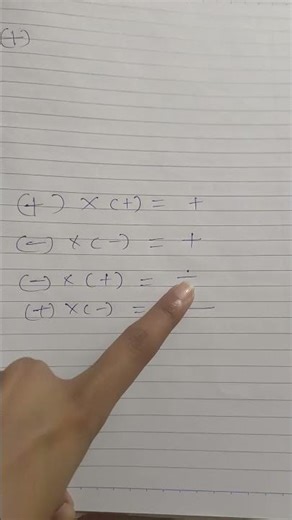 (+)
(+) × (+) = +
(-) × (-) = +
(-) × (+) = -
(+) × (-) = -